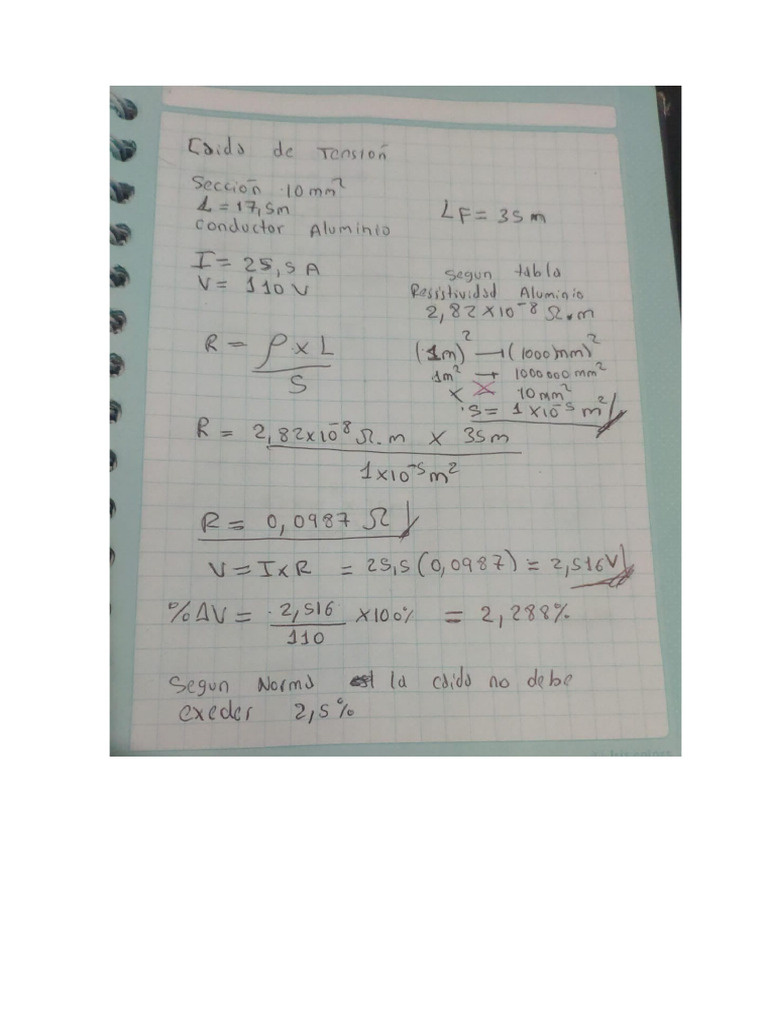 Caida de Tensión
Sección 10mm²
L = 17,5m
Conductor Aluminio
LF = 35m
I = 25,5A
V = 110V
Segun tabla
Resistividad Aluminio
2,82x10⁻⁸ Ω.m
R = ρ x L / S
(1m)² → (1000mm)²
1m² → 1000000mm²
x 10mm²
S = 1x10⁻⁵ m²
R = 2,82x10⁻⁸ Ω.m x 35m / 1x10⁻⁵m²
R = 0,0987 Ω
V = IxR = 25,5(0,0987) = 2,516V
%ΔV = 2,516 / 110 x100% = 2,288%
Segun Norma la caida no debe
exeder 2,5%